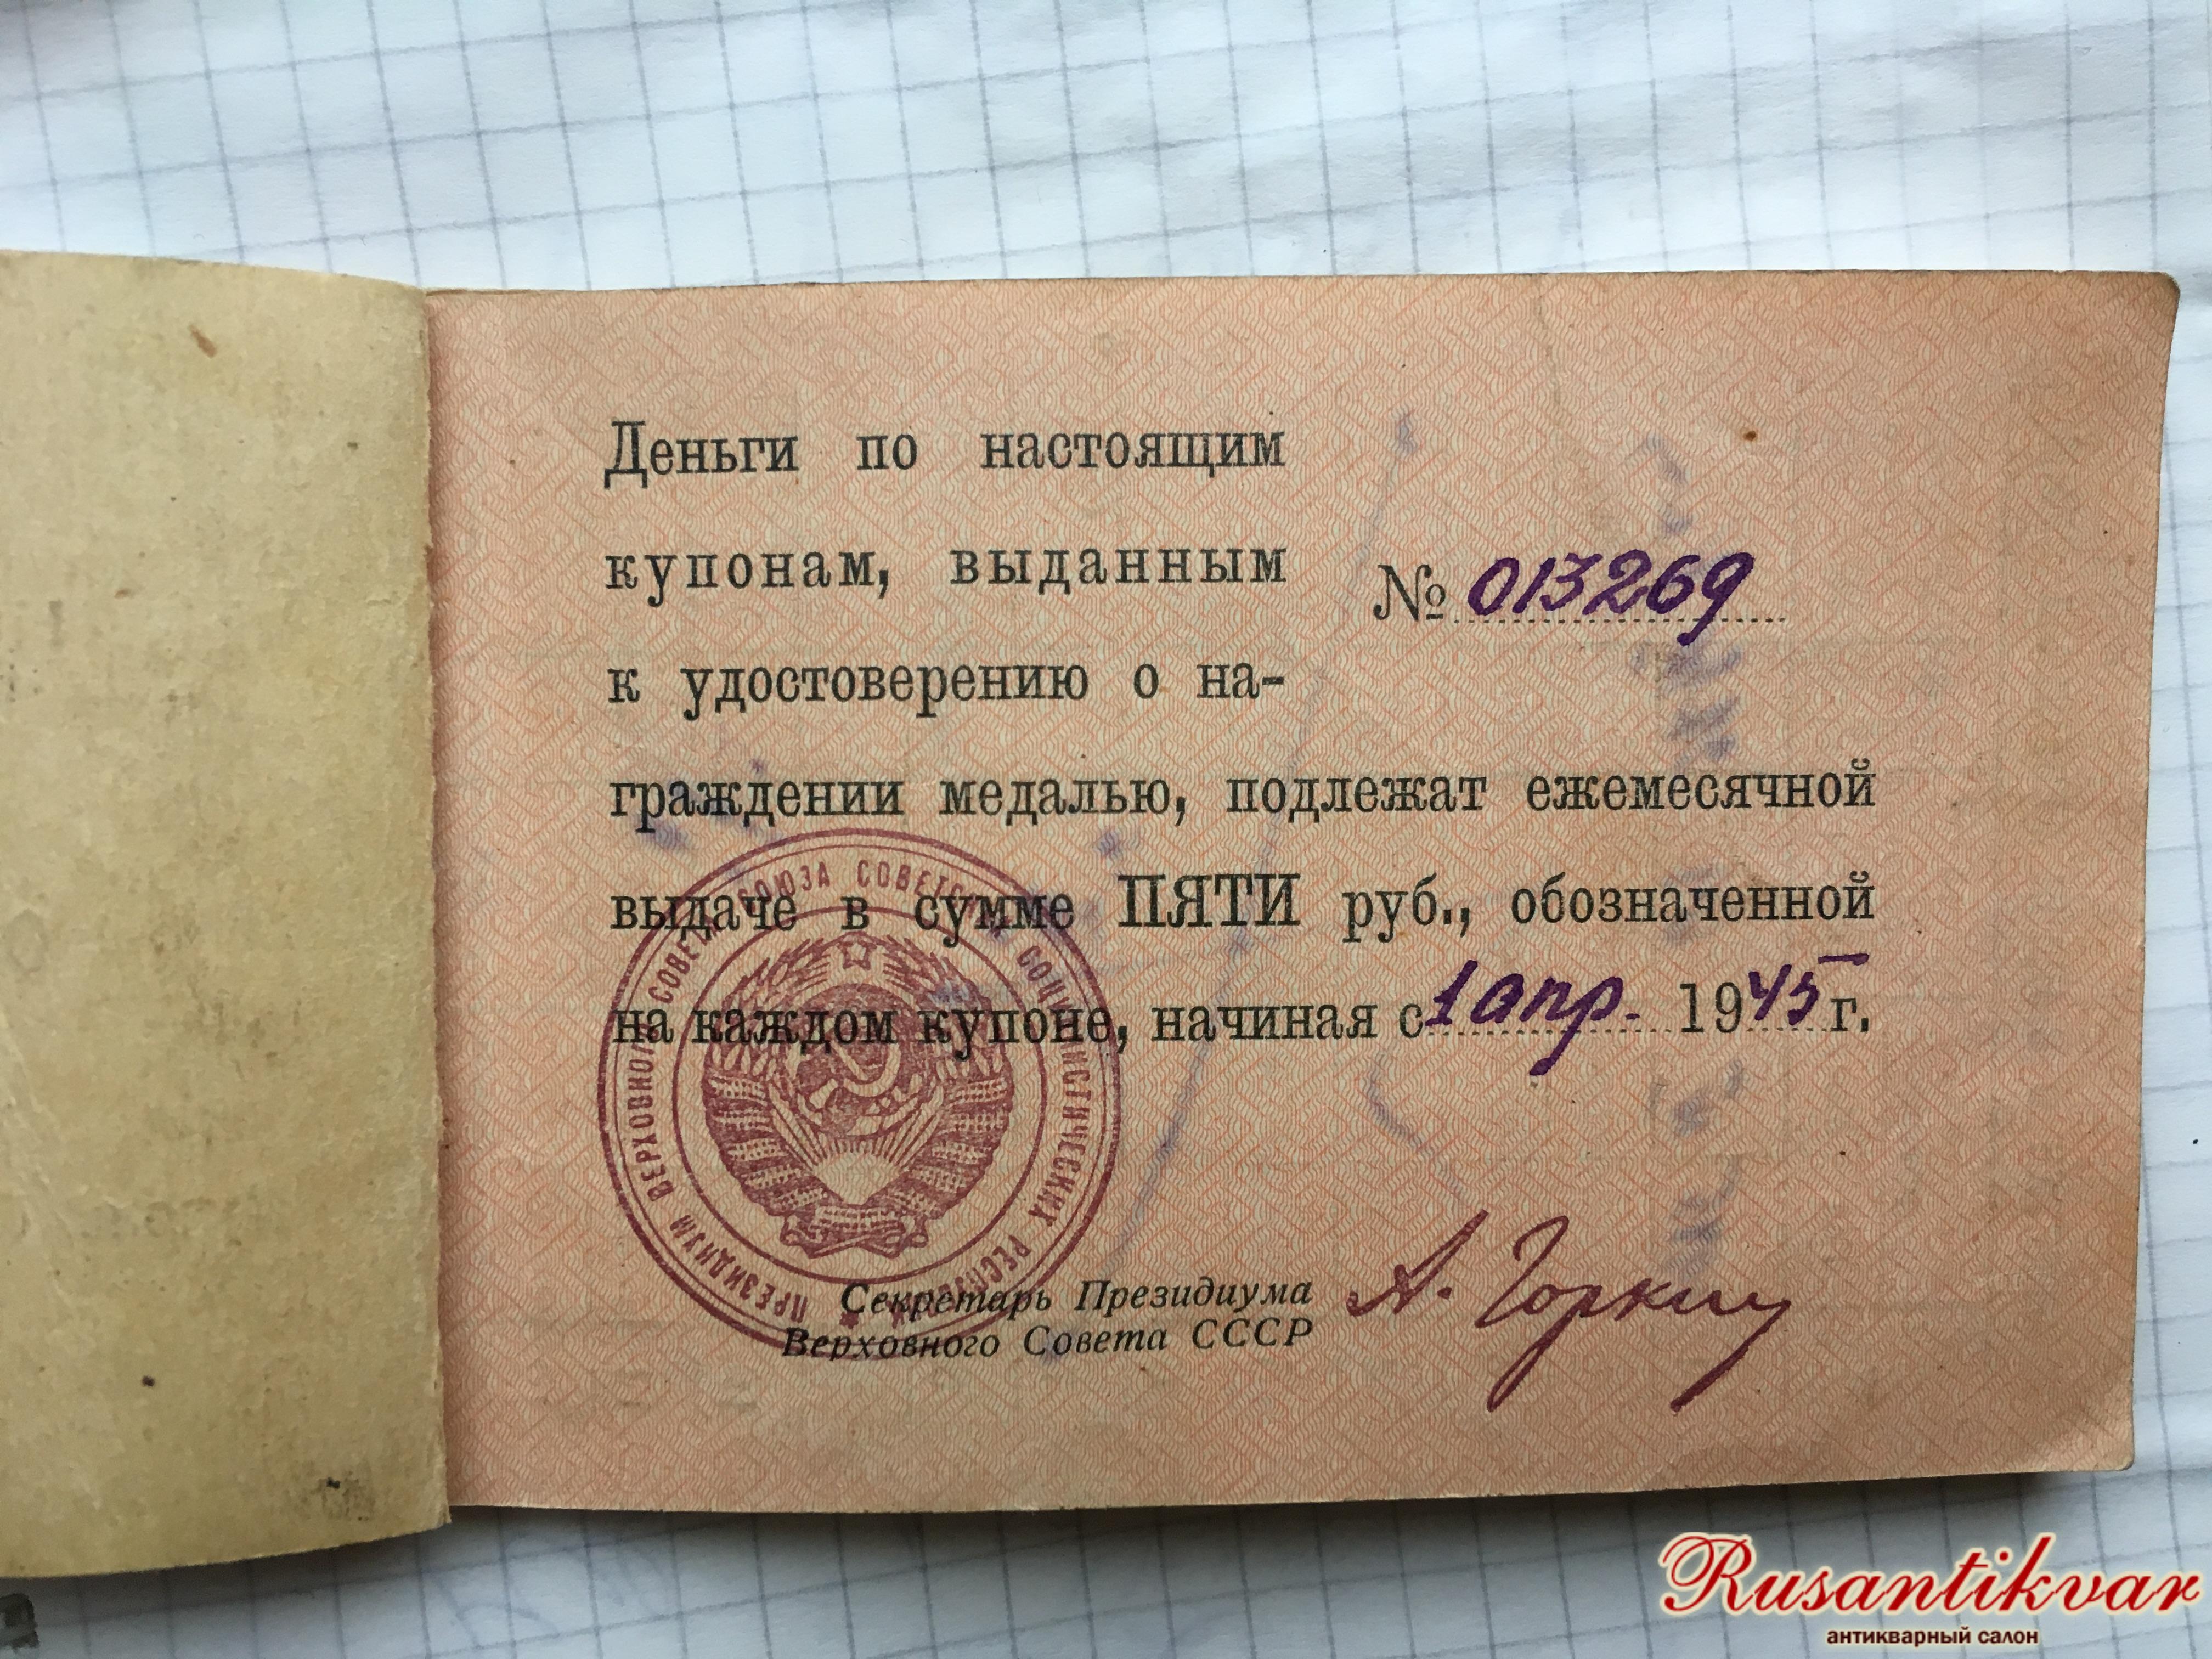 Деньги по настоящим
купонам, выданным
№ 013269
к удостоверению о на-
граждении медалью, подлежат ежемесячной
выдаче в сумме ПЯТИ руб., обозначенной
на каждом купоне, начиная с 1 апр. 1945 г.
ПРЕЗИДИУМ ВЕРХОВНОГО СОВЕТА СОЮЗА СОВЕТСКИХ СОЦИАЛИСТИЧЕСКИХ РЕСПУБЛИК
Секретарь Президиума
Верховного Совета СССР
А. Горкин
Rusantikvar
антикварный салон